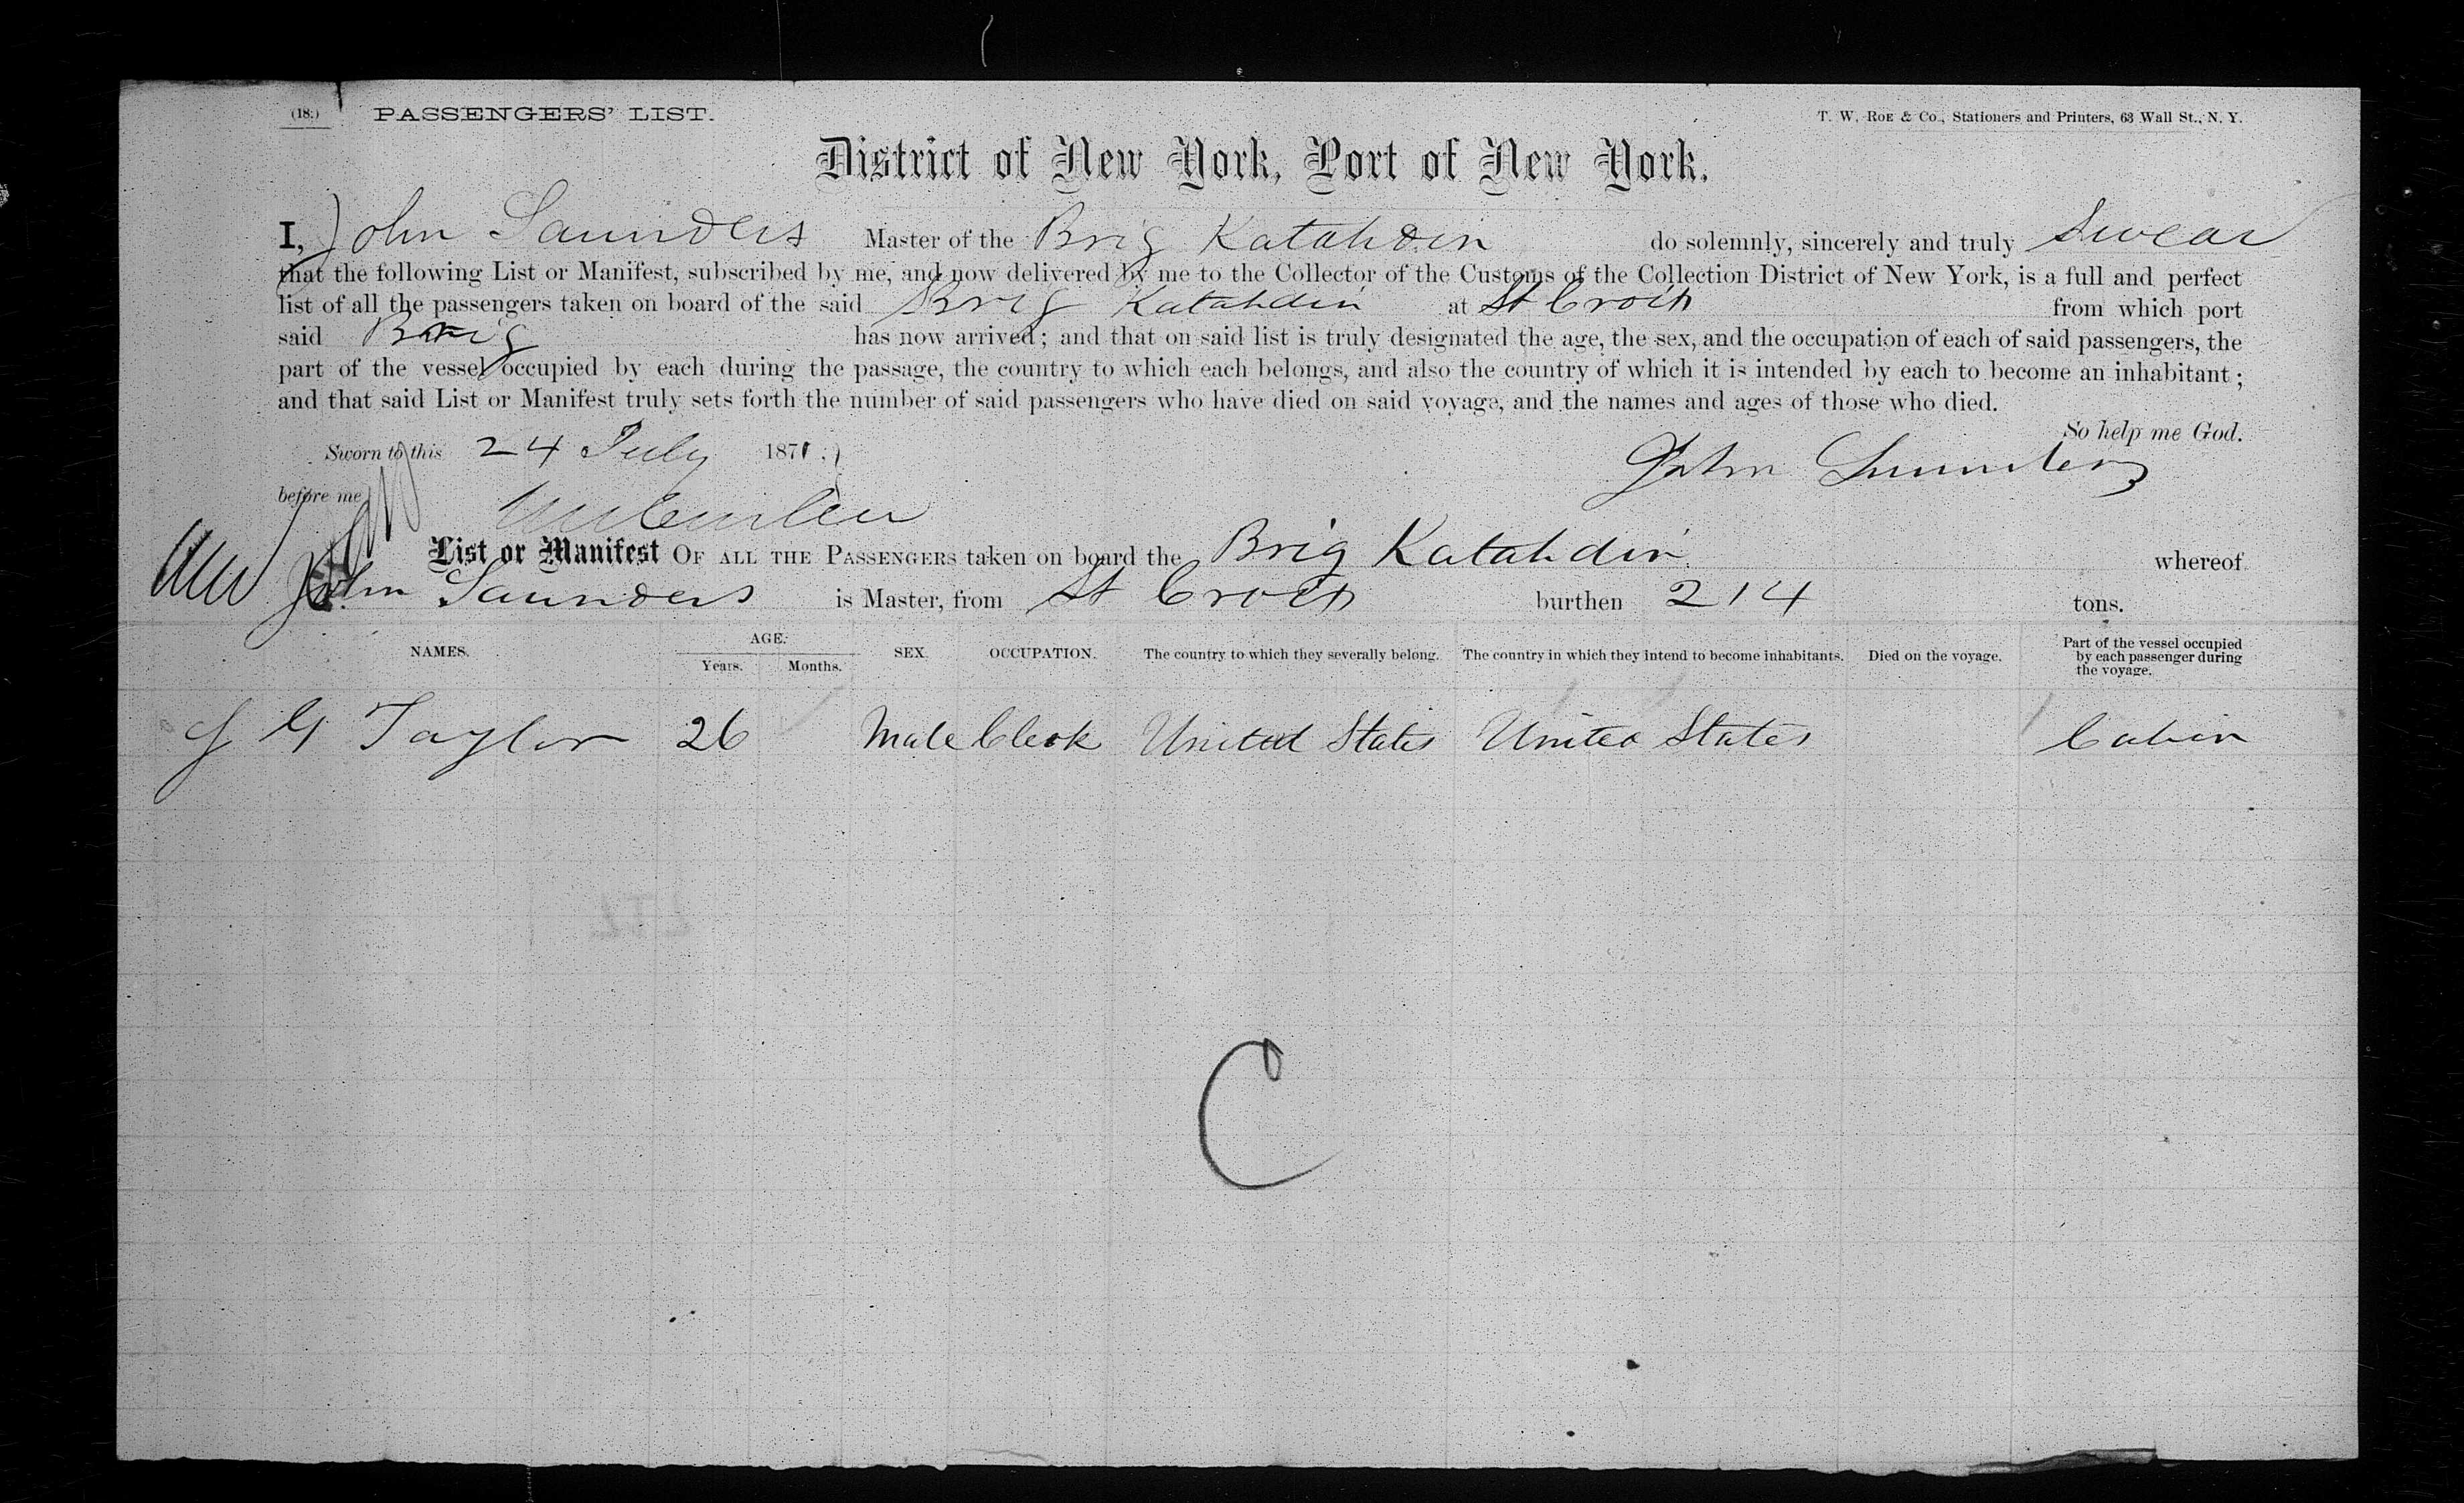 (18:) PASSENGERS' LIST. T. W. ROE & Co., Stationers and Printers, 63 Wall St., N. Y.
District of New York, Port of New York.
I, John Saunders Master of the Brig Katahdin do solemnly, sincerely and truly Swear
that the following List or Manifest, subscribed by me, and now delivered by me to the Collector of the Customs of the Collection District of New York, is a full and perfect
list of all the passengers taken on board of the said Brig Katahdin at St Croix from which port
said Brig has now arrived; and that on said list is truly designated the age, the sex, and the occupation of each of said passengers, the
part of the vessel occupied by each during the passage, the country to which each belongs, and also the country of which it is intended by each to become an inhabitant;
and that said List or Manifest truly sets forth the number of said passengers who have died on said voyage, and the names and ages of those who died.
So help me God.
Sworn to this 24 July 1871. John Saunders
before me
List or Manifest OF ALL THE PASSENGERS taken on board the Brig Katahdin whereof
John Saunders is Master, from St Croix burthen 214 tons.
NAMES. AGE. Years. Months. SEX. OCCUPATION. The country to which they severally belong. The country in which they intend to become inhabitants. Died on the voyage. Part of the vessel occupied by each passenger during the voyage.
J G Taylor 26 Male Clerk United States United States Cabin
C